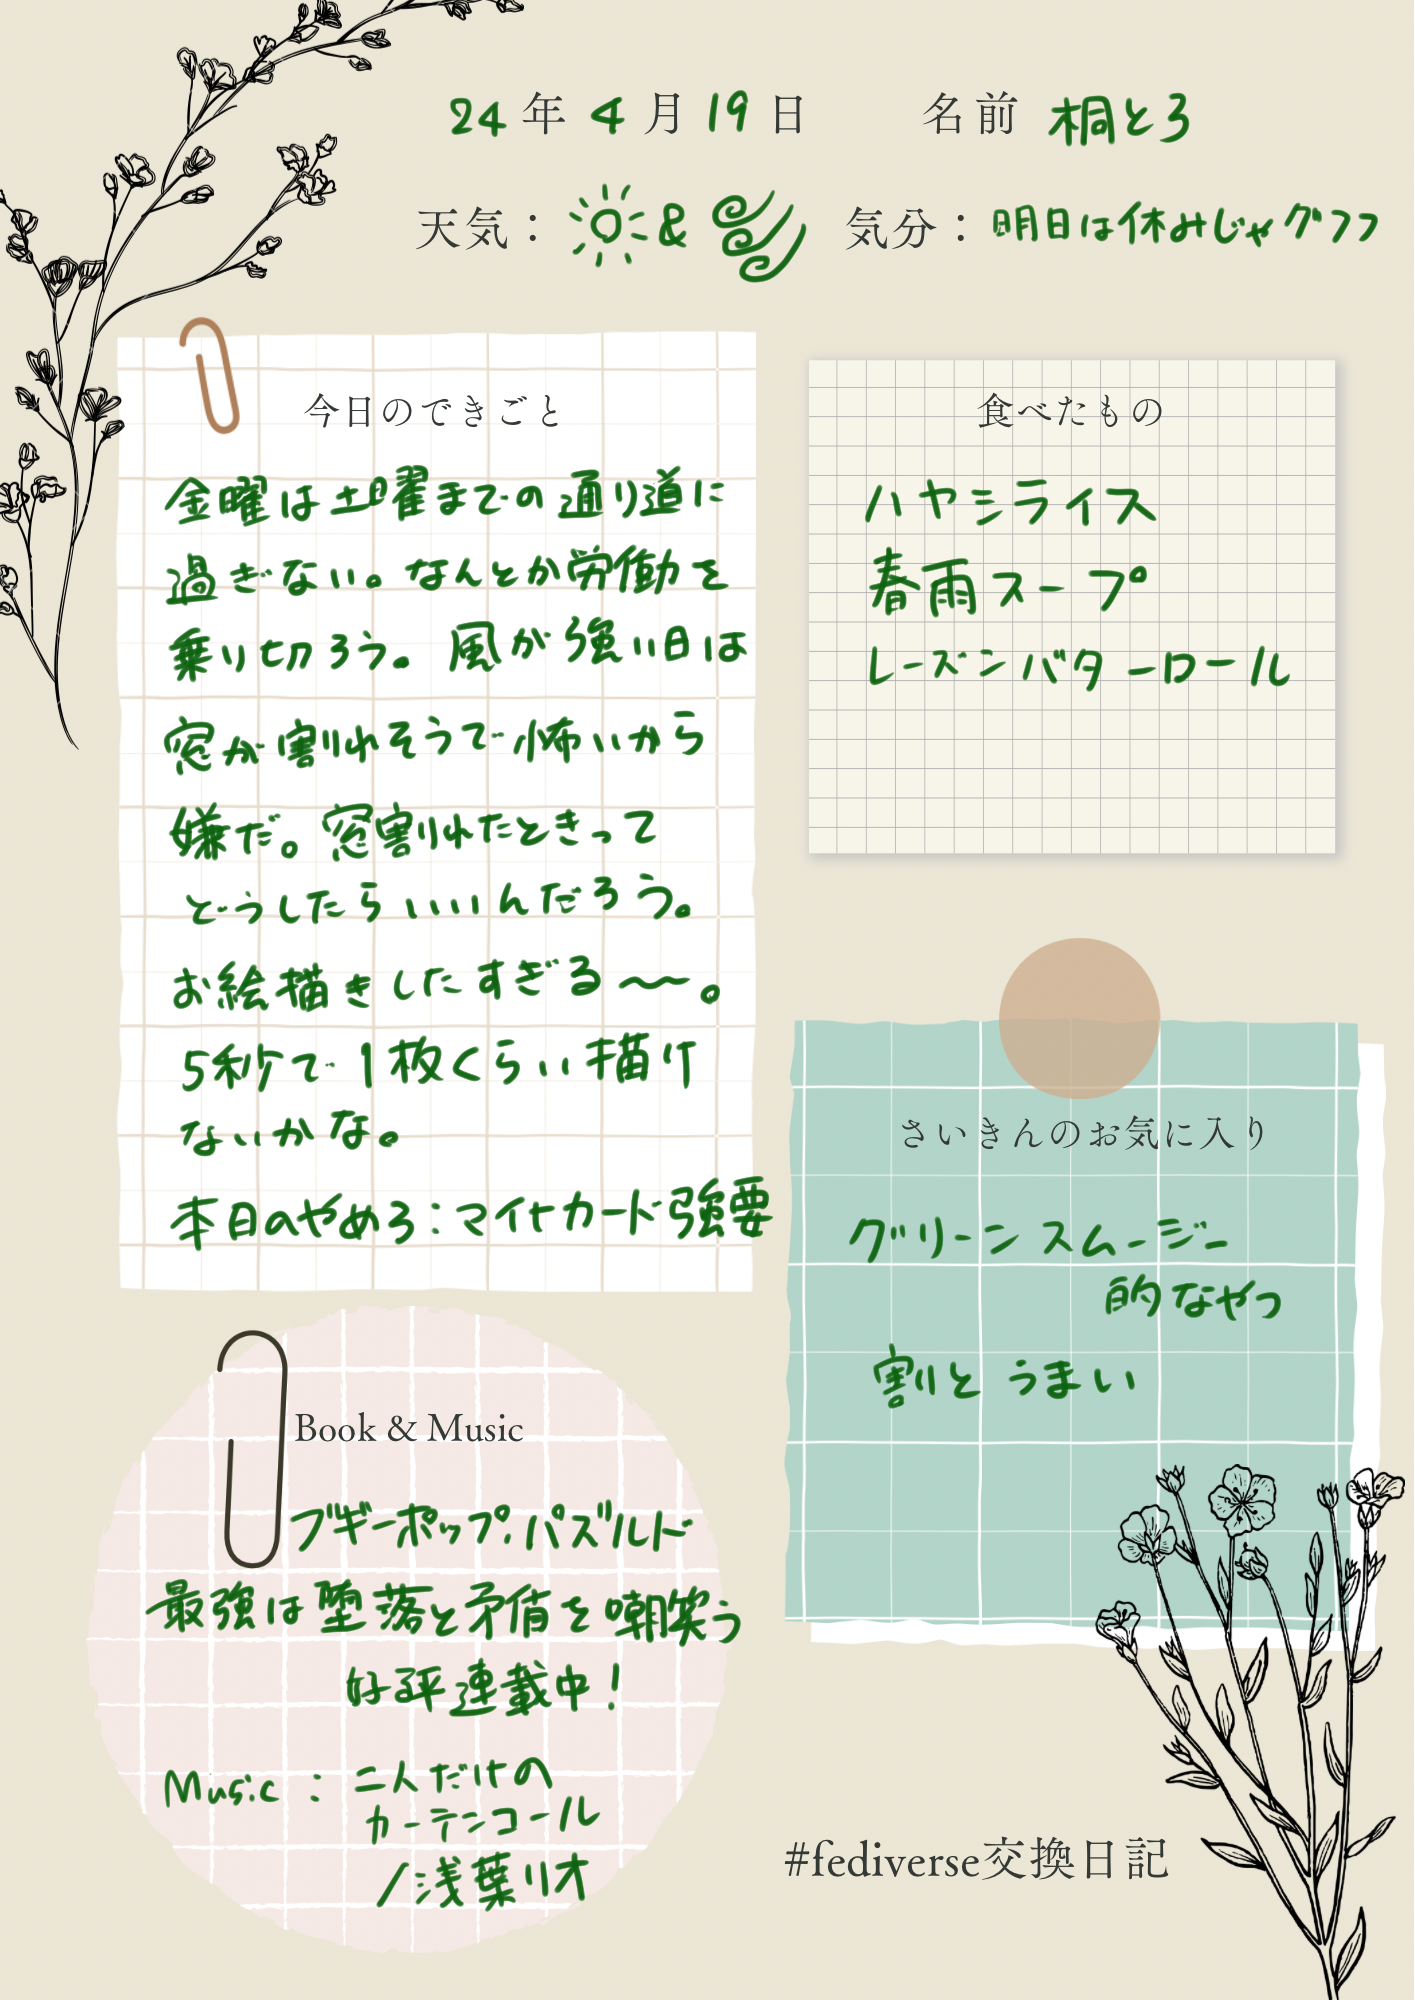 24年4月19日 名前 桐とろ
天気：& 気分：明日は休みじゃグフフ
今日のできごと
金曜は土曜までの通り道に
過ぎない。なんとか労働を
乗り切ろう。風が強い日は
窓が割れそうで怖いから
嫌だ。窓割れたときって
どうしたらいいんだろう。
お絵描きしたすぎる〜〜。
5秒で1枚くらい描け
ないかな。
本日のやめろ：マイナカード強要
食べたもの
ハヤシライス
春雨スープ
レーズンバターロール
さいきんのお気に入り
グリーンスムージー
的なやつ
割とうまい
Book & Music
ブギーポップ・パズルド
最強は堕落と矛盾を嘲笑う
好評連載中！
Music：二人だけの
カーテンコール
/浅葉リオ
#fediverse交換日記